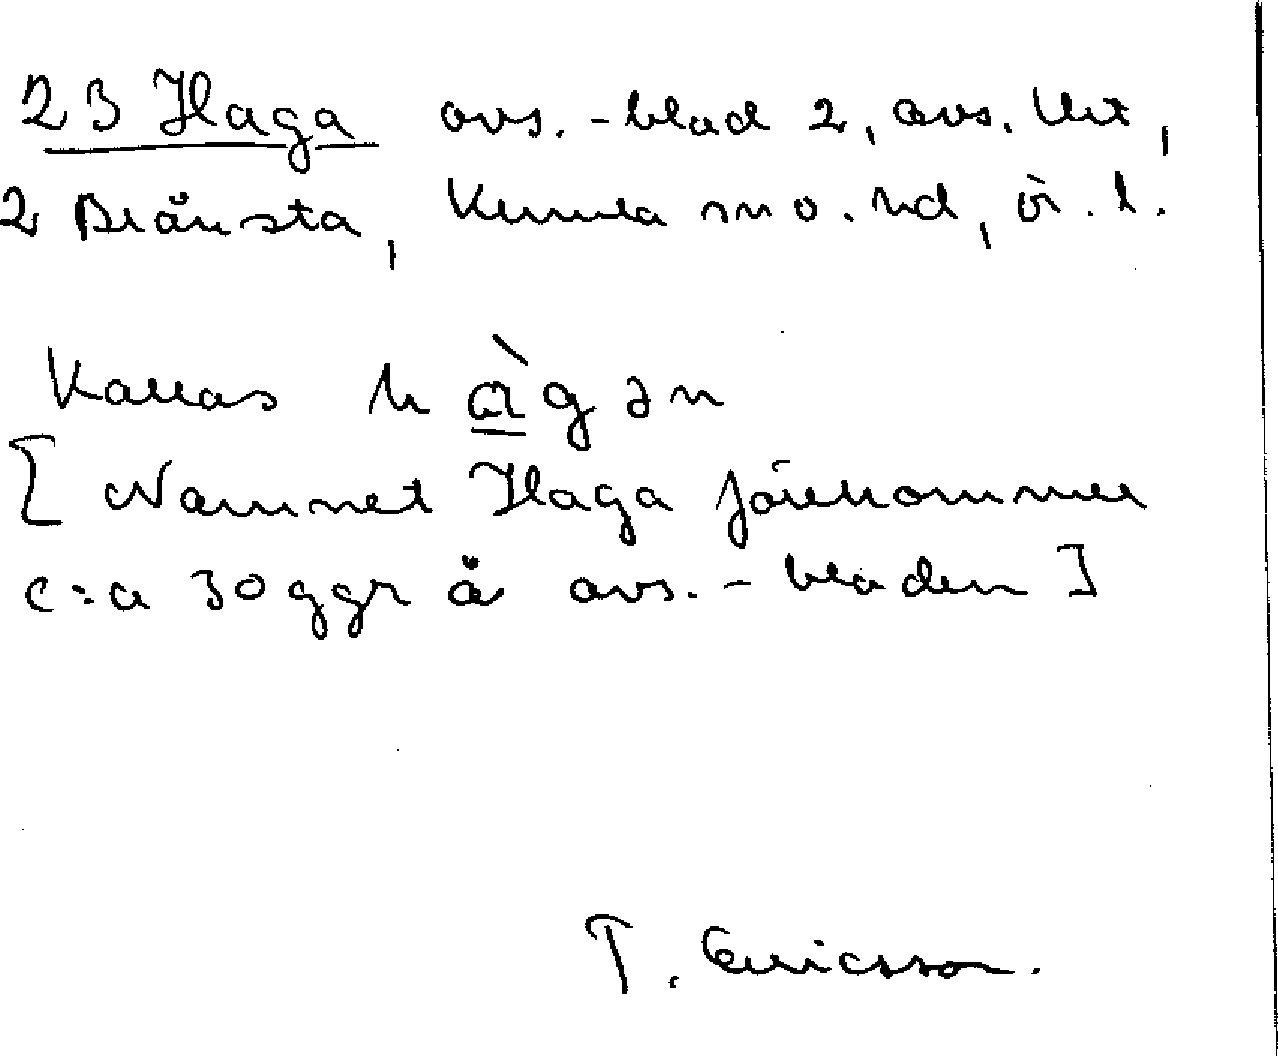 23 Haga avs.-blad 2, avs. Ut,
2 Brånsta, Kumla sn o. hd, ör. l.
Kallas hàgən
[Namnet Haga förekommer
c:a 30 ggr å avs.-bladen]
T. Ericsson.